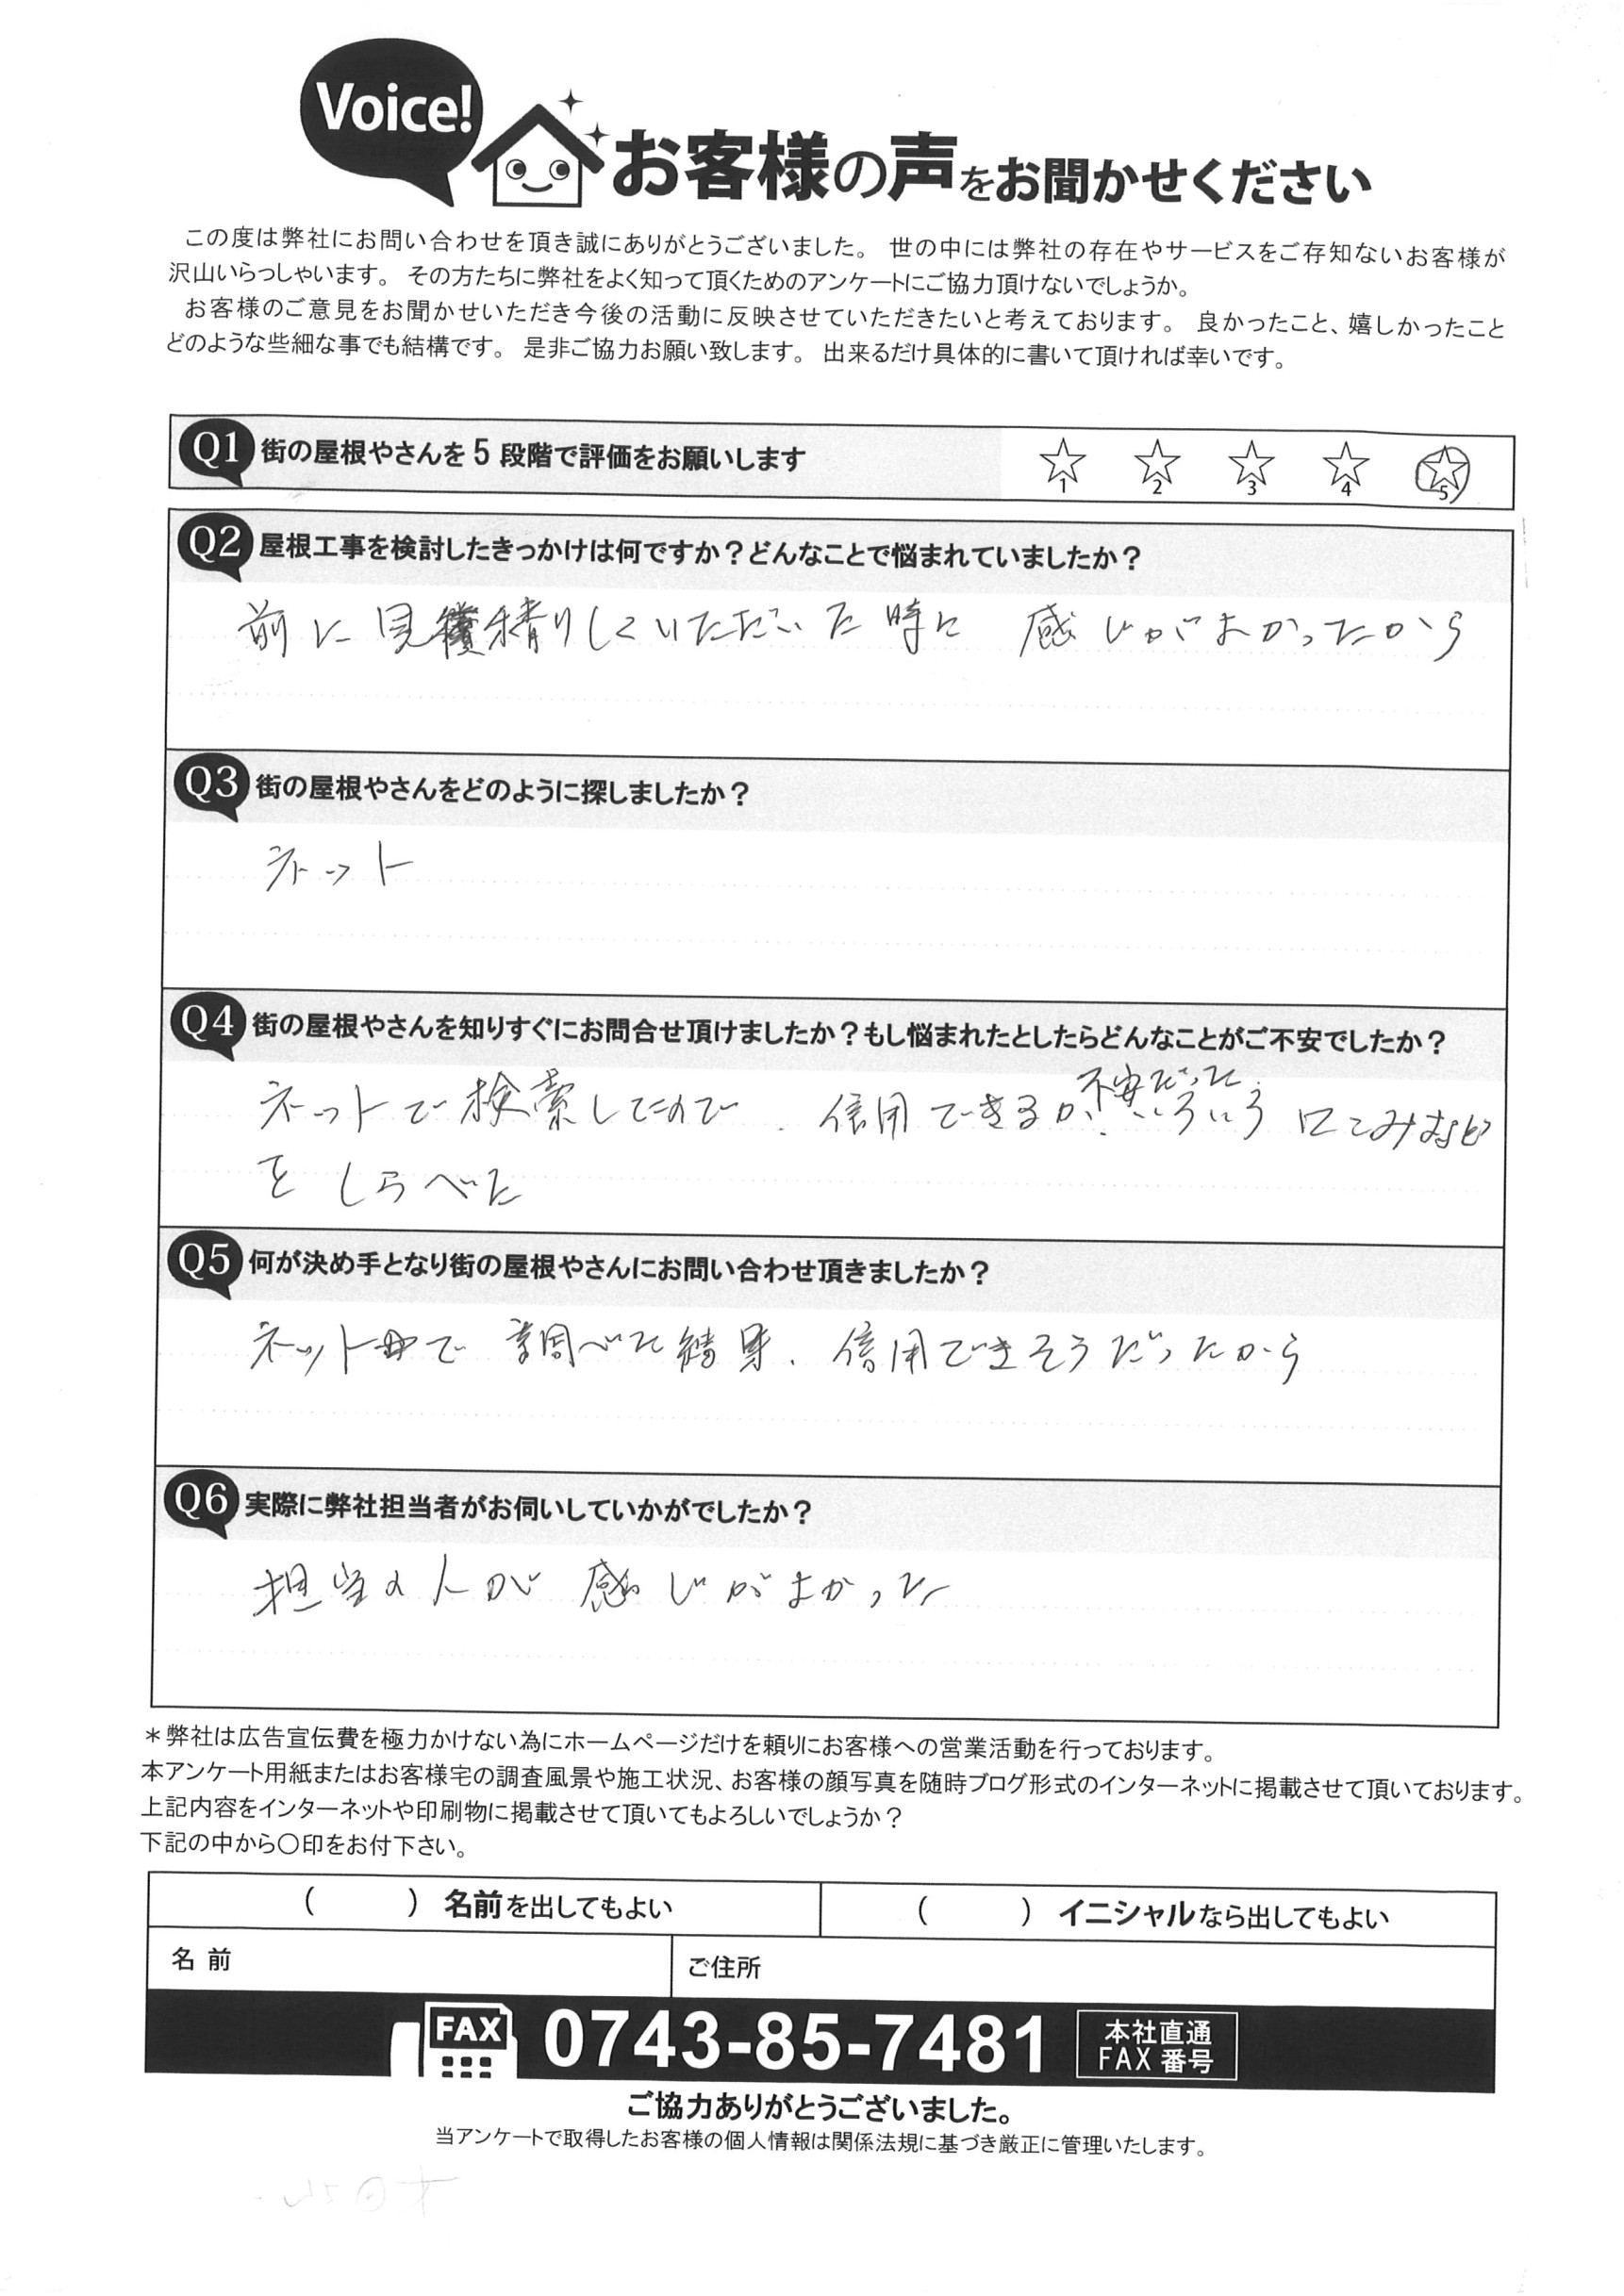 Voice!
お客様の声をお聞かせください
この度は弊社にお問い合わせを頂き誠にありがとうございました。 世の中には弊社の存在やサービスをご存知ないお客様が
沢山いらっしゃいます。 その方たちに弊社をよく知って頂くためのアンケートにご協力頂けないでしょうか。
お客様のご意見をお聞かせいただき今後の活動に反映させていただきたいと考えております。 良かったこと、嬉しかったこと
どのような些細な事でも結構です。 是非ご協力お願い致します。 出来るだけ具体的に書いて頂ければ幸いです。
Q1 街の屋根やさんを 5 段階で評価をお願いします ☆1 ☆2 ☆3 ☆4 ☆5
Q2 屋根工事を検討したきっかけは何ですか？どんなことで悩まれていましたか？
前に見積りしていただいた時に 感じがよかったから
Q3 街の屋根やさんをどのように探しましたか？
ネット
Q4 街の屋根やさんを知りすぐにお問合せ頂けましたか？もし悩まれたとしたらどんなことがご不安でしたか？
不安だった
ネットで検索してたので 信用できるか、いろいろ 口こみなど
をしらべた
Q5 何が決め手となり街の屋根やさんにお問い合わせ頂きましたか？
ネットで調べた結果、信用できそうだったから
Q6 実際に弊社担当者がお伺いしていかがでしたか？
担当の人が 感じがよかった
＊弊社は広告宣伝費を極力かけない為にホームページだけを頼りにお客様への営業活動を行っております。
本アンケート用紙またはお客様宅の調査風景や施工状況、お客様の顔写真を随時ブログ形式のインターネットに掲載させて頂いております。
上記内容をインターネットや印刷物に掲載させて頂いてもよろしいでしょうか？
下記の中から〇印をお付下さい。
（　　　）名前を出してもよい （　　　）イニシャルなら出してもよい
名 前 ご住所
FAX 0743-85-7481 本社直通
FAX 番号
ご協力ありがとうございました。
当アンケートで取得したお客様の個人情報は関係法規に基づき厳正に管理いたします。